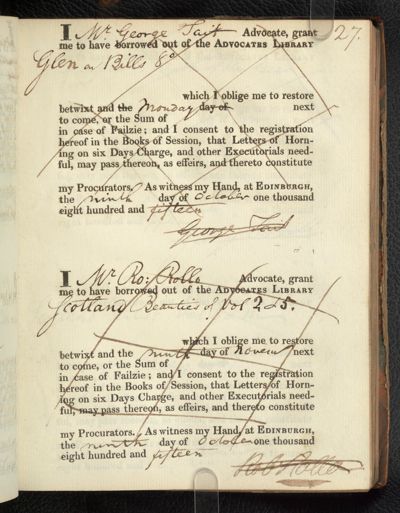 27.
I Mr. George Tait Advocate, grant
me to have borrowed out of the ADVOCATES LIBRARY
Glen on Bills 8o
which I oblige me to restore
betwixt and the Monday day of next
to come, or the Sum of
in case of Failzie; and I consent to the registration
hereof in the Books of Session, that Letters of Horn-
ing on six Days Charge, and other Executorials need-
ful, may pass thereon, as effeirs, and thereto constitute
my Procurators. As witness my Hand, at EDINBURGH,
the ninth day of October one thousand
eight hundred and fifteen
George Tait
I Mr. Ro: Rollo Advocate, grant
me to have borrowed out of the ADVOCATES LIBRARY
Scotland Beauties of Vol 2 & 5.
which I oblige me to restore
betwixt and the ninth day of Novem next
to come, or the Sum of
in case of Failzie; and I consent to the registration
hereof in the Books of Session, that Letters of Horn-
ing on six Days Charge, and other Executorials need-
ful, may pass thereon, as effeirs, and thereto constitute
my Procurators. As witness my Hand, at EDINBURGH,
the ninth day of October one thousand
eight hundred and fifteen
Rob Rollo